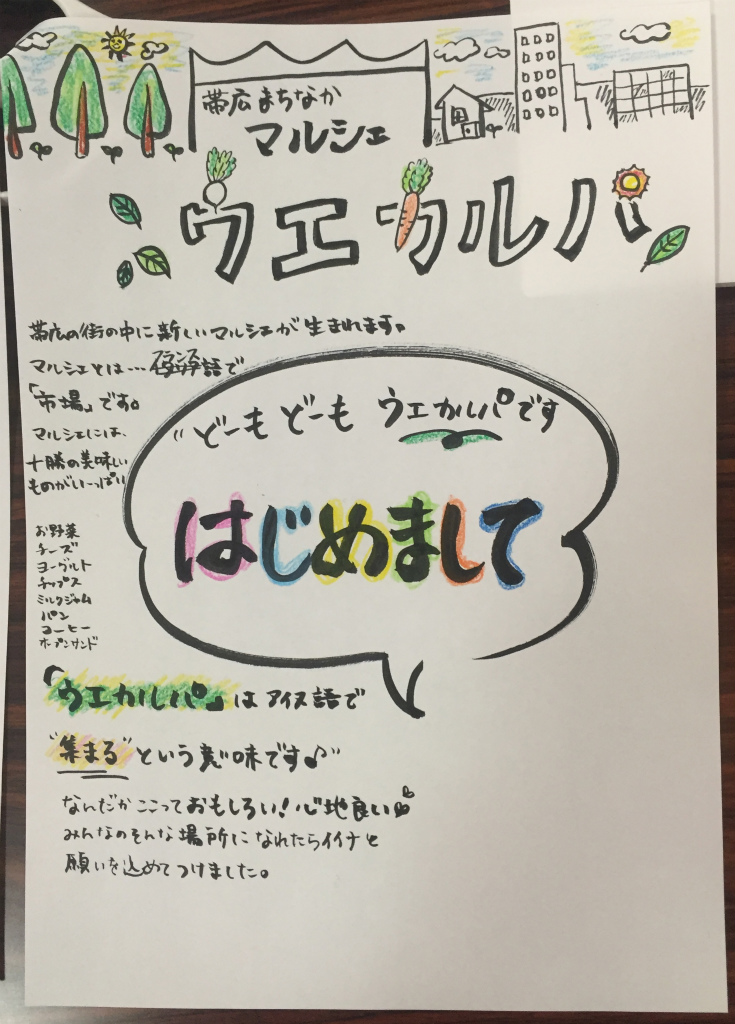 帯広まちなか
マルシェ
ウエカルパ
帯広の街の中に新しいマルシェが生まれます。
マルシェとは…フランス語で
「市場」です。
マルシェには、
十勝の美味しい
ものがい〜っぱい
お野菜
チーズ
ヨーグルト
チップス
ミルクジャム
パン
コーヒー
オープンサンド
"どーもどーも ウエカルパです
はじめまして
「ウエカルパ」はアイヌ語で
"集まる"という意味です♪"
なんだかここっておもしろい!心地良い
みんなのそんな場所になれたらイイナと
願いを込めてつけました。